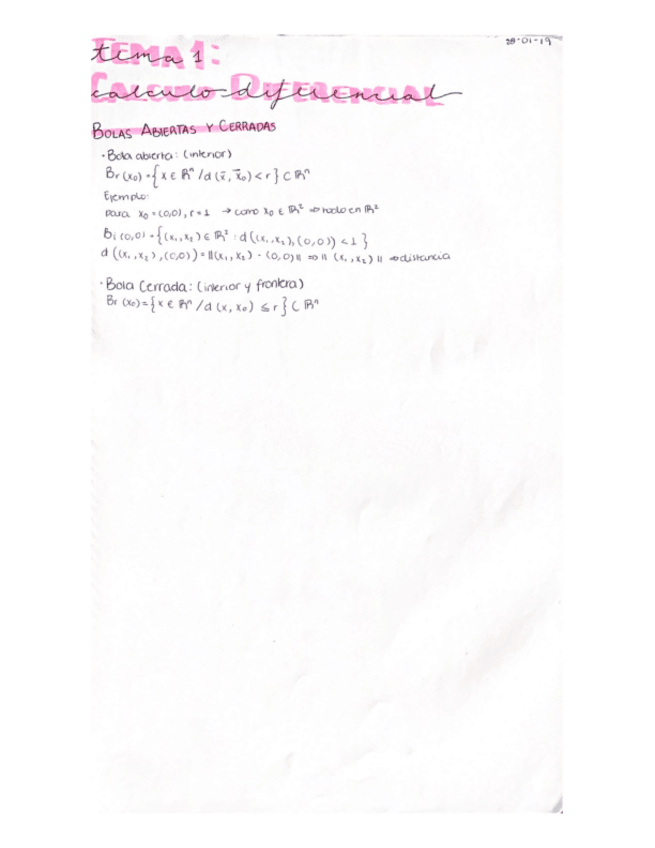 28-01-19
TEMA 1:
tema 1:
CALCULO DIFERENCIAL
calculo diferencial
BOLAS ABIERTAS Y CERRADAS
· Bola abierta: (interior)
Br (x₀) = {x ∈ ℝⁿ / d (x̄, x̄₀) < r} ⊂ ℝⁿ
Ejemplo:
para x₀ = (0,0), r = 1 → como x₀ ∈ ℝ² ⇒ todo en ℝ²
B₁ (0,0) = {(x₁, x₂) ∈ ℝ² : d ((x₁, x₂), (0,0)) < 1}
d ((x₁, x₂), (0,0)) = ||(x₁, x₂) - (0,0)|| ⇒ || (x₁, x₂) || ⇒ distancia
· Bola Cerrada: (interior y frontera)
Br (x₀) = {x ∈ ℝⁿ / d (x, x₀) ≤ r} ⊂ ℝⁿ